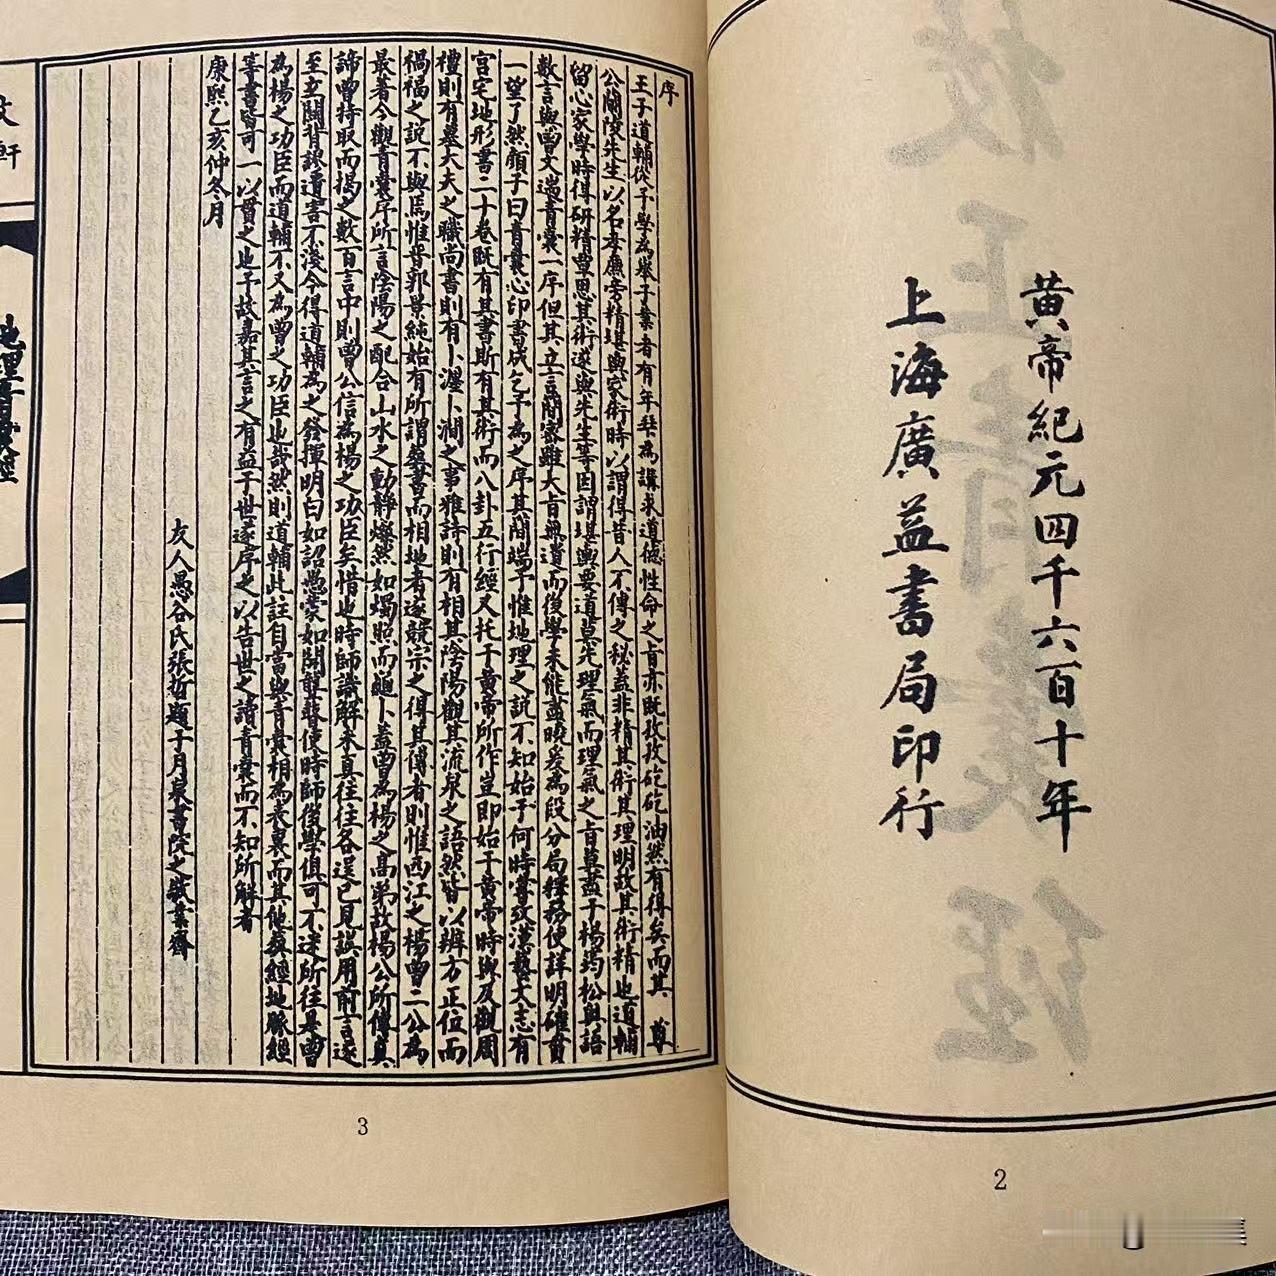 黄帝紀元四千六百十年
上海廣益書局印行
2
序
王子道輔從予學為舉子業者有年桒為講求道德性命之旨亦既孜孜矻矻油然有得矣而其 尊
公闇陵先生以名孝廉旁精堪輿家術時以謂得昔人不傳之秘蓋非精其術其理明故其術精也道輔
留心家學時得研精覃思其術遂與先生等因謂堪輿要道莫先理氣而理氣之旨莫盡于楊筠松奥語
數言與曾文遄青囊一序但其立言閎深雖大旨無遺而後學未能盡曉爰為段分局釋務使詳明確實
一望了然顏予曰青囊心印書成乞予為之序其開端予惟地理之說不知始于何時嘗攷漢藝文志有
宮宅地形書二十卷既有其書斯有其術而八卦五行經又托于黃帝所作豈即始于黃帝時與及觀周
禮則有墓大夫之職尚書則有卜瀍卜澗之事雅詩則有相其陰陽觀其流泉之語然皆以辨方正位而
禍福之說不與焉惟晉郭景純始有所謂葬書而相地者遂競宗之得其傳者則惟西江之楊曾二公為
最著今觀青囊序所言陰陽之配合山水之動靜燦然如燭照而龜卜蓋曾為楊之高弟故楊公所傳真
諦曾特取而揭之數百言中則曾公信為楊之功臣矣惜也時師識解未真往往各逞已見誤用前言遂
至立闢背謬遺害不淺今得道輔為之發揮明白如詔愚蒙如開聾瞽使時師後學俱可不迷所往是曾
為楊之功臣而道輔不又為曾之功臣也哉然則道輔此註自當與青囊相為表裏而其他葬經地脈經
等書皆可一以貫之也予故嘉其言之有益于世遂序之以告世之讀青囊而不知所解者
康熙乙亥仲冬月
友人愚谷氏張哲題于月泉書院之敬業齋
3
地理青囊經